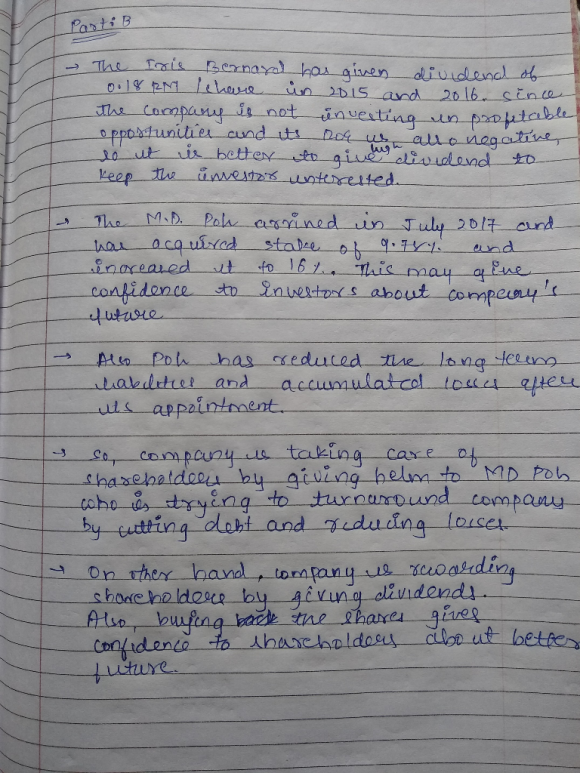 Part: B
→ The Iris Bernard has given dividend of
0.18 RM /share in 2015 and 2016. Since
the company is not investing in profitable
opportunities and its ROE is also negative,
so it is better to give high dividend to
keep the investor interested.
→ The M.D. Poh arrived in July 2017 and
has acquired stake of 9.78%. and
increased it to 16%. This may give
confidence to Investors about company's
future
→ Also Poh has reduced the long term
liabilities and accumulated losses after
its appointment.
→ So, company is taking care of
shareholders by giving helm to MD Poh
who is trying to turnaround company
by cutting debt and reducing losses.
→ On other hand, company is rewarding
shareholders by giving dividends.
Also, buying the shares gives
confidence to shareholders about better
future.